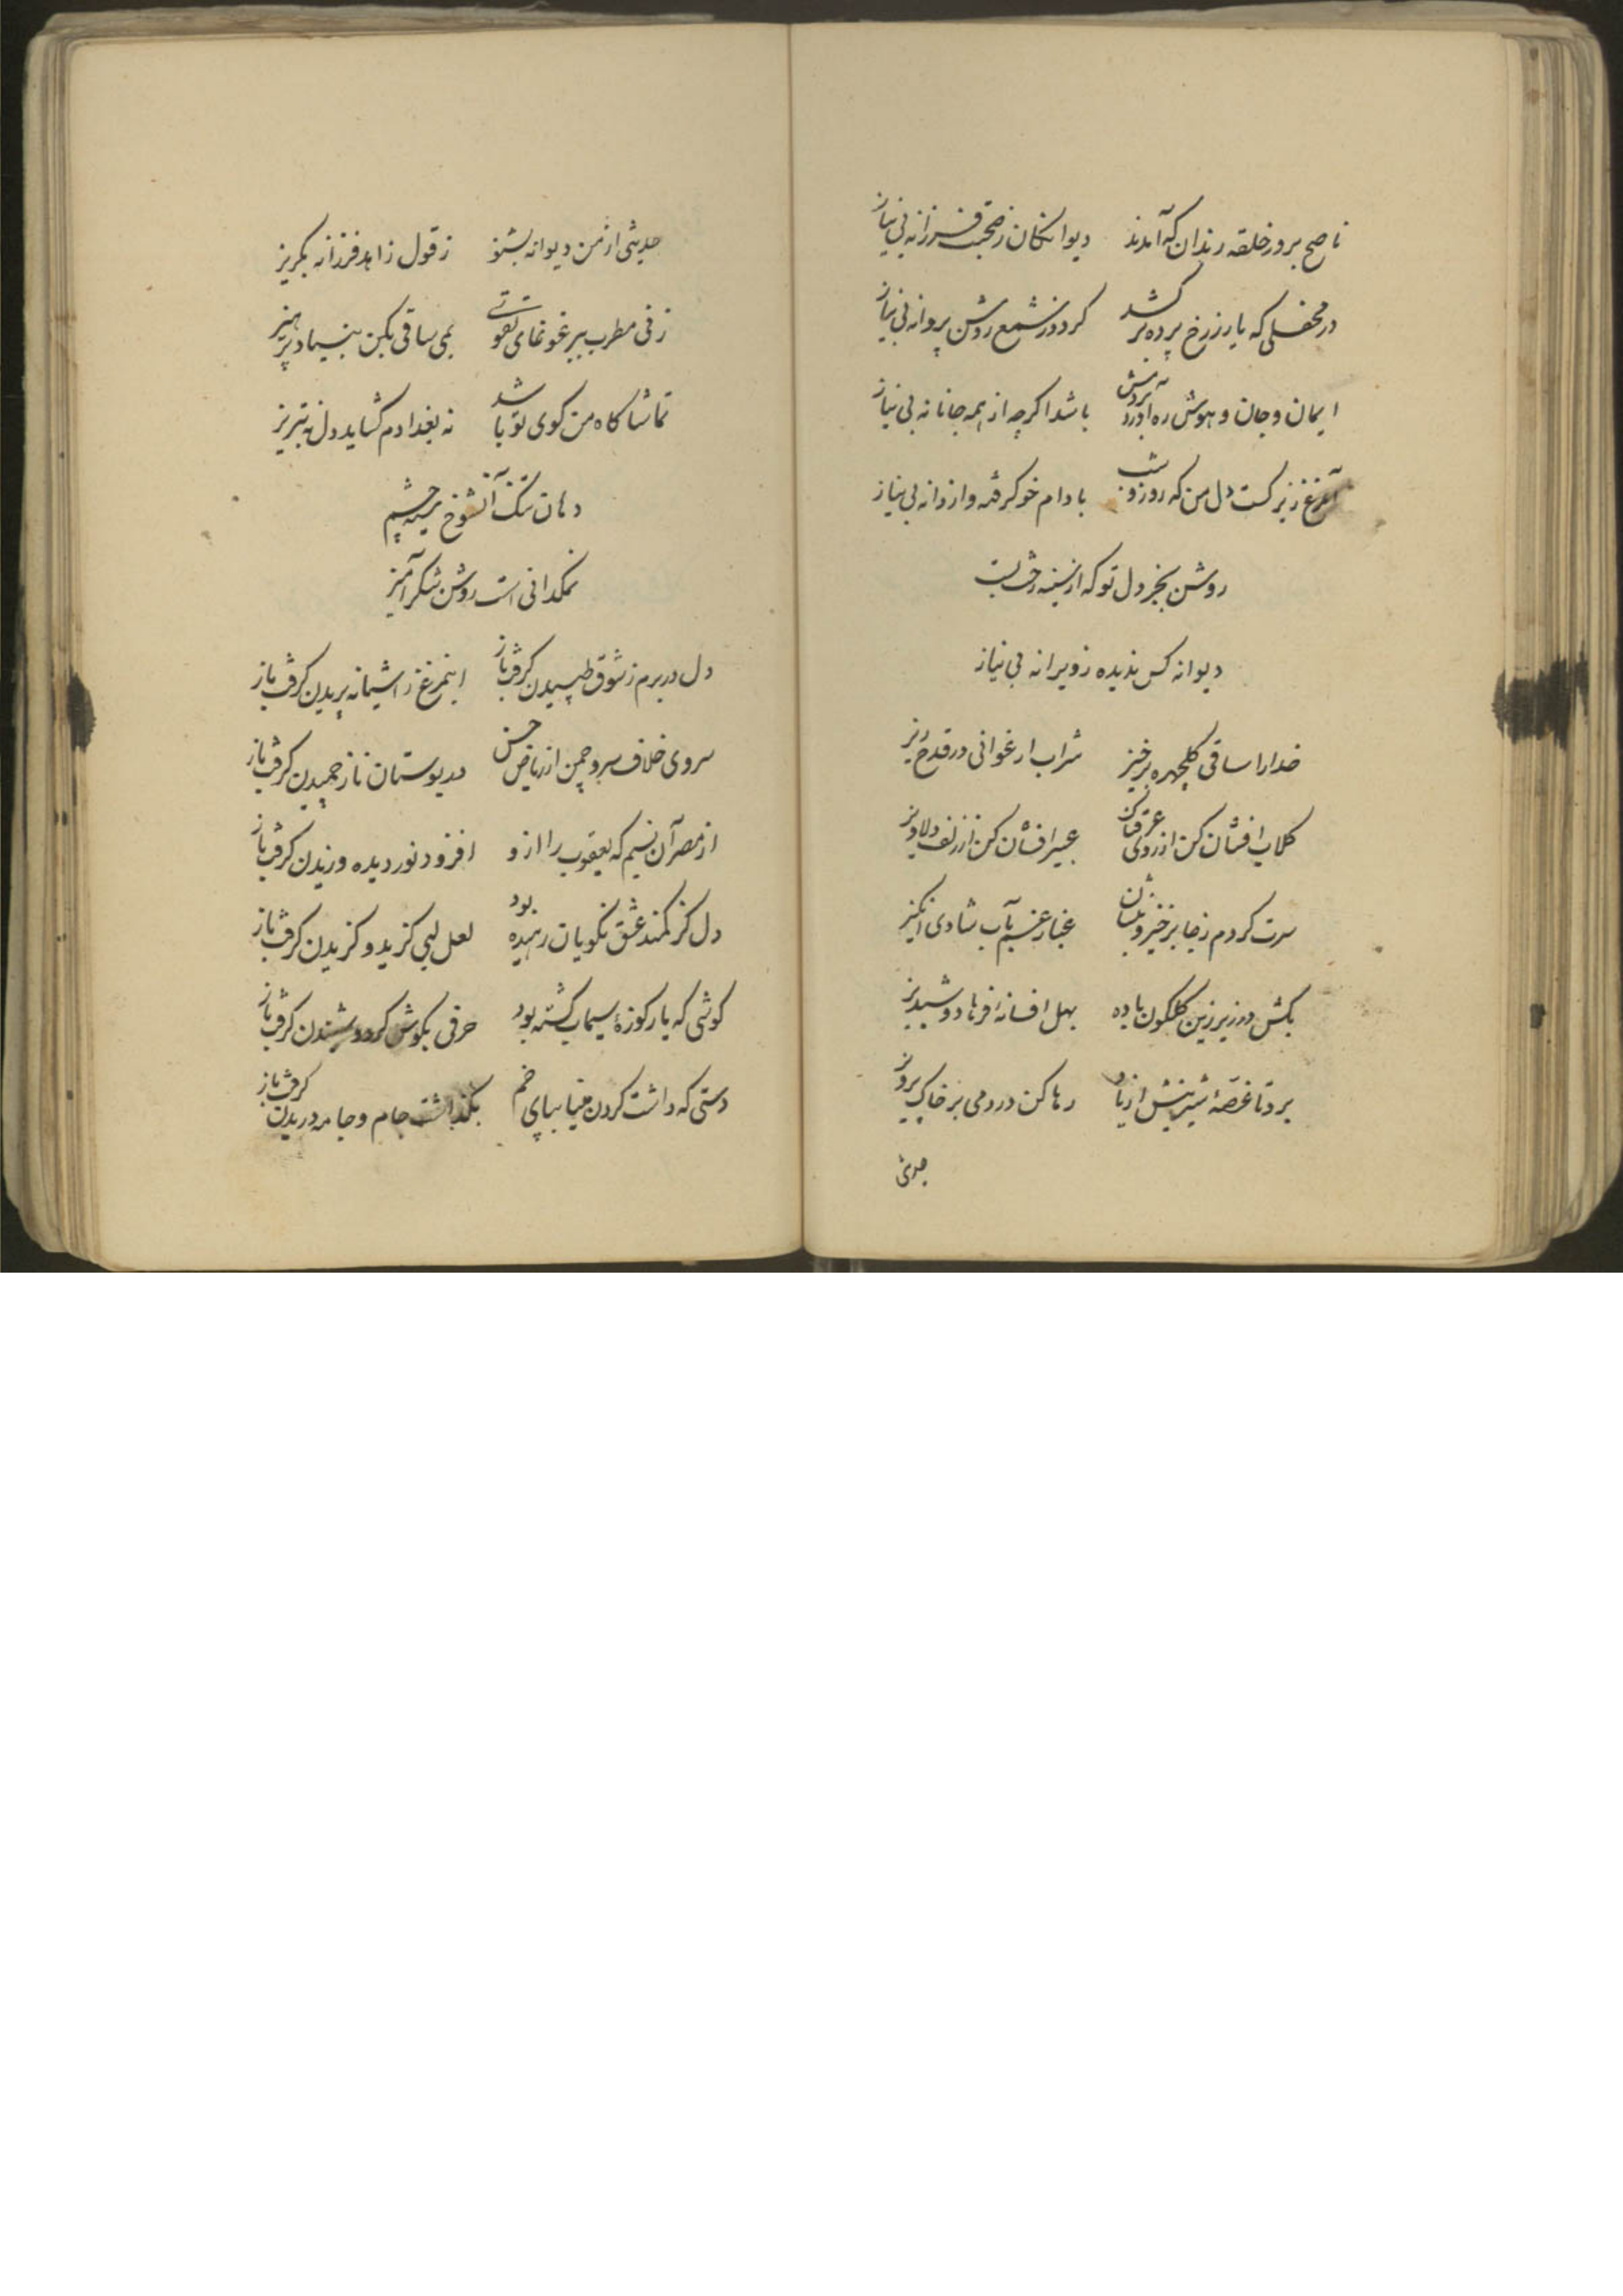 ناصح برو ز حلقه رندان که آمدند دیوانکان ز صحبت فرزانه بی نیاز
در محفلی که یار ز رخ پرده برکشد کردد ز شمع روشن پروانه بی نیاز
ایمان و جان و هوش ره آورد باشد اکرچه از همه جانانه بی نیاز
آنمرغ زیرکست دل من که روز و شب با دام خو کرفته و از دانه بی نیاز
روشن بخر دل تو که از سینه رخت بست
دیوانه کس ندیده ز ویرانه بی نیاز
خدارا ساقی کلچهره برخیز شراب ارغوانی در قدح ریز
کلاب افشان کن از روی عرقناک عبیر افشان کن از زلف دلاویز
سرت کردم ز جا برخیز و بنشان غبار غم بآب شادی انکیز
بکش در زیر زین کلکون باده بهل افسانه فرهاد و شبدیز
برد تا غصهٔ شیرینش از یاد رها کن درد می بر خاک پرویز
حدیثی
حدیثی از من دیوانه بشنو ز قول زاهد فرزانه بکریز
ز نی مطرب ببر غوغای تقوی بمی ساقی بکن بنیاد پرهیز
تماشا کاه من کوی تو باشد نه بغدادم کشاید دل نه تبریز
دهان تنک آنشوخ سیه چشم
نمکدانی است روشن شکر آمیز
دل در برم ز شوق طپیدن کرفت باز اینمرغ ز آشیانه پریدن کرفت باز
سروی خلاف سرو چمن از ریاض حسن در بوستان ناز چمیدن کرفت باز
از مصر آن نسیم که یعقوب را از و افزود نور دیده وزیدن کرفت باز
دل کز کمند عشق نکویان رمیده بود لعل لبی کزید و کزیدن کرفت باز
کوشی که بار کوزهٔ سیماب کشته بود حرفی بکوش کرد و شنیدن کرفت باز
دستی که داشت کردن مینا بپای خم بکذاشت جام و جامه دریدن کرفت باز